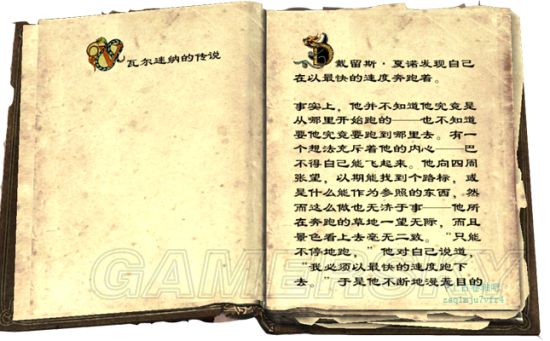 瓦尔迷纳的传说
戴留斯·夏诺发现自己
在以最快的速度奔跑着。
事实上，他并不知道他究竟是
从哪里开始跑的——也不知道
要他究竟要跑到哪里去。有一
个想法充斥着他的内心——巴
不得自己能飞起来。他向四周
张望，以期能找到个路标，或
是什么能作为参照的东西，然
而这么做也无济于事——他所
在奔跑的草地一望无际，而且
景色看上去毫无二致。“只能
不停地跑，”他对自己说道，
“我必须以最快的速度跑下
去。”于是他不断地漫无目的
GAMERSKY
zaq1mju7vfr4